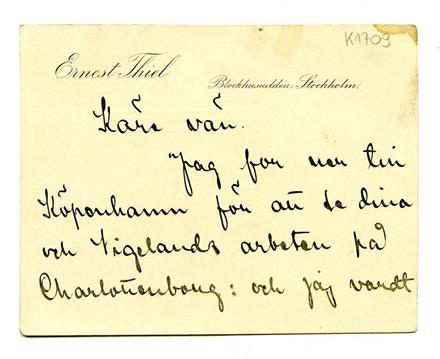 K1709
Ernest Thiel
Blockhusudden, Stockholm.
Käre vän.
Jag for ner till
Köpenhamn för att se dina
och Vigelands arbeten på
Charlottenborg: och jag vardt